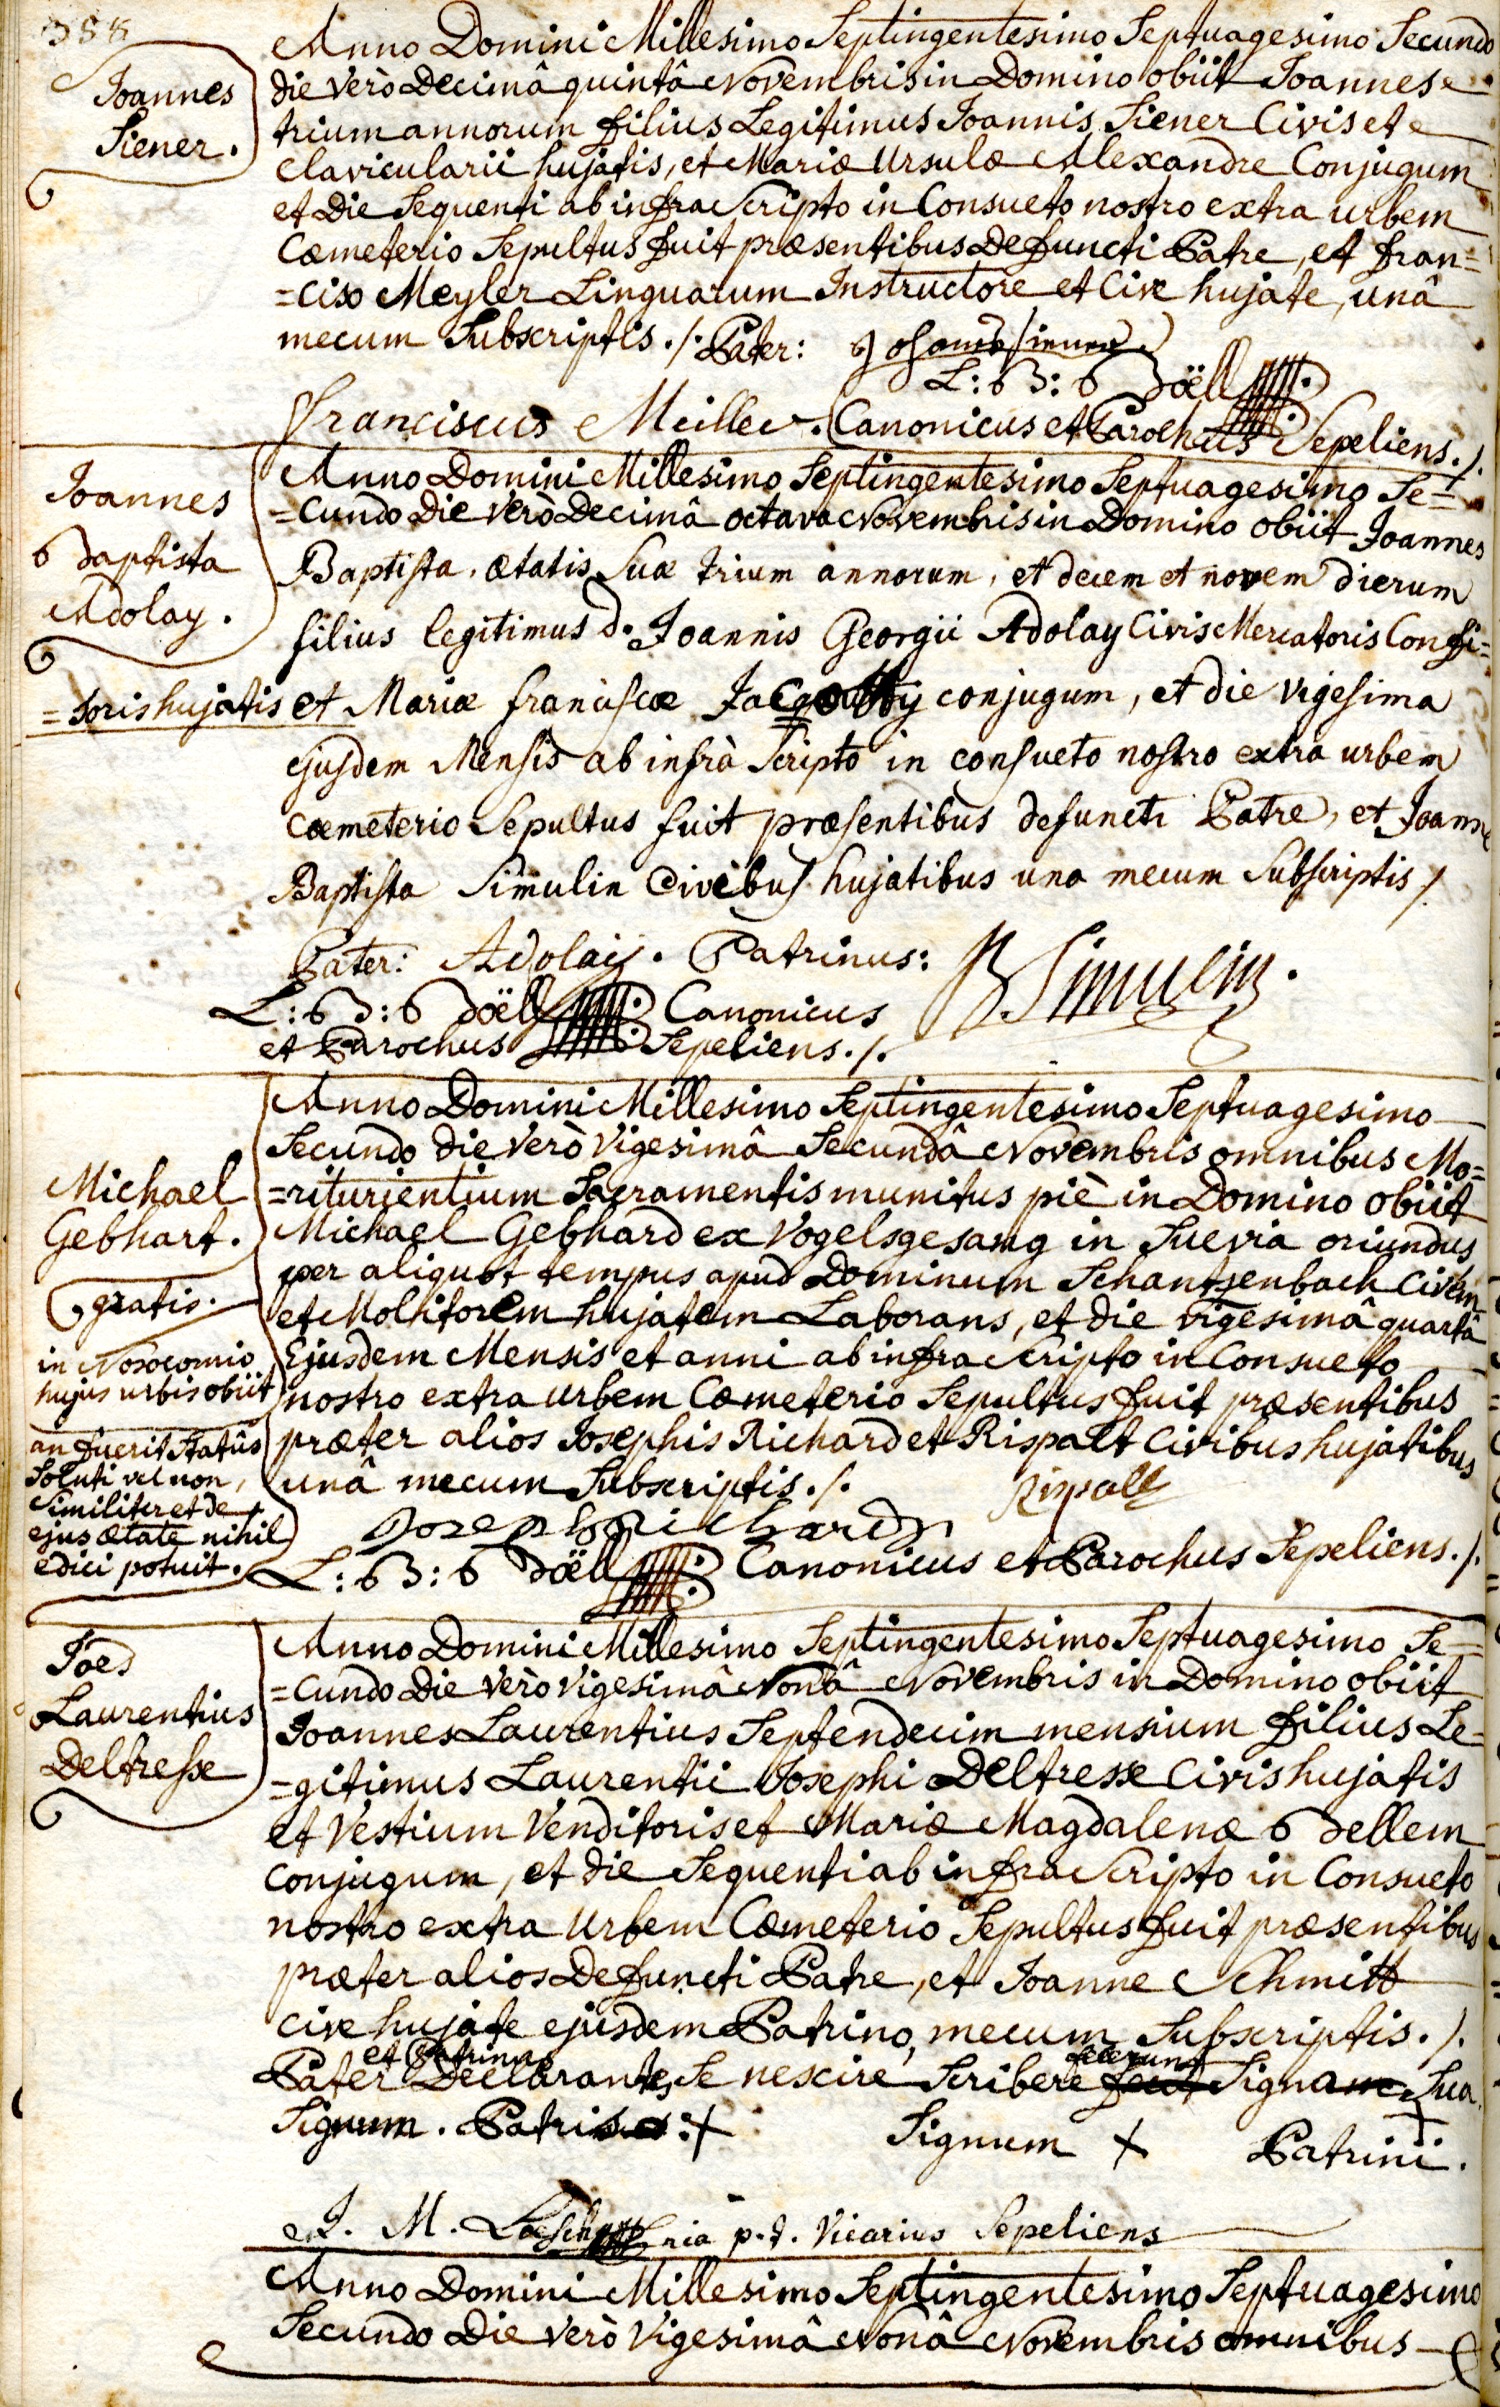 358
Joannes
Siener.
Anno Domini Millesimo Septingentesimo Septuagesimo Secundo
die verò Decimâ quintâ Novembris in Domino obiit Joannes
trium annorum filius Legitimus Joannis Siener Civis et
Clavicularii hujatis, et Mariæ Ursulæ Alexandre Conjugum
et die Sequenti ab infra Scripto in Consueto nostro extra urbem
Cæmeterio Sepultus fuit præsentibus Defuncti Patre, et Fran=
=cisco Meyler Linguarum Instructore et Cive hujate, unâ
mecum Subscriptis ./. Pater: Johannes Siener
L: B: Böell
Franciscus Meiller. Canonicus et Parochus Sepeliens ./.
Joannes
Baptista
Adolay.
Anno Domini Millesimo Septingentesimo Septuagesimo Se=
=cundo die verò Decimâ octava Novembris in Domino obiit Joannes
Baptista, ætatis Suæ trium annorum, et decem et novem dierum
filius legitimus d. Joannis Georgii Adolay Civis Mercatoris Confi=
=toris hujatis et Mariæ Franciscæ conjugum, et die vigesima
ejusdem Mensis ab infrà Scripto in consueto nostro extra urbem
cœmeterio Sepultus fuit præsentibus defuncti Patre, et Joanne
Baptista Simulin Civibus hujatibus una mecum Subscriptis ./.
Pater: Adolaÿ. Patrinus: B Simulin.
L: B: Böell Canonicus
et Parochus Sepeliens ./.
Michael
Gebhart.
gratis.
in Nosocomio
hujus urbis obiit
an fuerit Statûs
Soluti vel non,
Similiter et de
ejus ætate nihil
edici potuit.
Anno Domini Millesimo Septingentesimo Septuagesimo
Secundo die verò Vigesimâ Secundâ Novembris omnibus Mo=
=riturientium Sacramentis munitus piè in Domino obiit
Michael Gebhard ex Vogelsgesang in Suevia oriundus
per aliquot tempus apud Dominum Schantzenbach Civem
et Molitorem hujatem Laborans, et die vigesimâ quartâ
Ejusdem Mensis et anni ab infra Scripto in Consueto
nostro extra urbem Cæmeterio Sepultus fuit præsentibus
præter alios Josephis Richard et Rispalt Civibus hujatibus
unâ mecum Subscriptis ./. Rispalt
Joseph Richard
L: B: Böell Canonicus et Parochus Sepeliens ./.
Joes
Laurentius
Deltresse
Anno Domini Millesimo Septingentesimo Septuagesimo Se=
=cundo die verò vigesimâ Nonâ Novembris in Domino obiit
Joannes Laurentius Septendecim mensium filius Le=
=gitimus Laurentii Josephi Deltresse Civis hujatis
et Vestium Venditoris et Mariæ Magdalenæ Bellem
conjugum, et die Sequenti ab infra Scripto in Consueto
nostro extra Urbem Cæmeterio Sepultus fuit præsentibus
præter alios Defuncti Patre, et Joanne Schmitt
cive hujate ejusdem Patrino, mecum Subscriptis ./.
et Patrinus fecerunt
Pater Declarantes Se nescire Scribere Signa Sua
Signum. Patris :+ Signum + Patrini.
J. M. p.t. Vicarius Sepeliens
Anno Domini Millesimo Septingentesimo Septuagesimo
Secundo Die verò Vigesimâ Nonâ Novembris omnibus